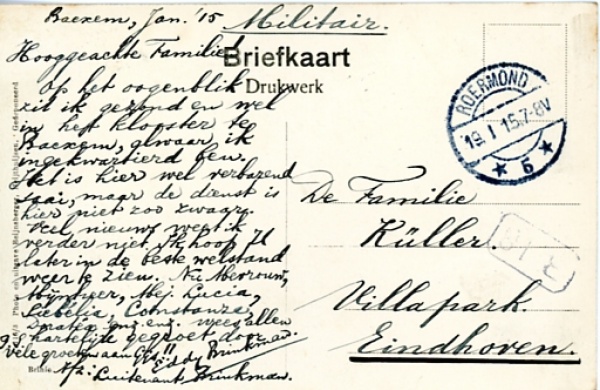 Baexem, Jan. '15
Militair.
Hooggeachte Familie!
Briefkaart
Drukwerk
Op het oogenblik
zit ik gezond en wel
in het klooster te
Baexem, alwaar ik
ingekwartierd ben.
Het is hier wel verbazend
saai, maar de dienst is
hier niet zoo zwaar.
Veel nieuws weet ik
verder niet. Ik hoop U
later in de beste welstand
weer te zien. Nu Mevrouw,
Mijnheer, Mej. Lucia,
Liebelia, Constanze,
enz. enz. wees allen
hartelijk gegroet door
Vele groeten aan
Eddy Brinkman.
Afz: Luitenant Brinkman.
ROERMOND
19.1.15.7-8V
* 5 *
De Familie
Küller.
Villapark.
Eindhoven.